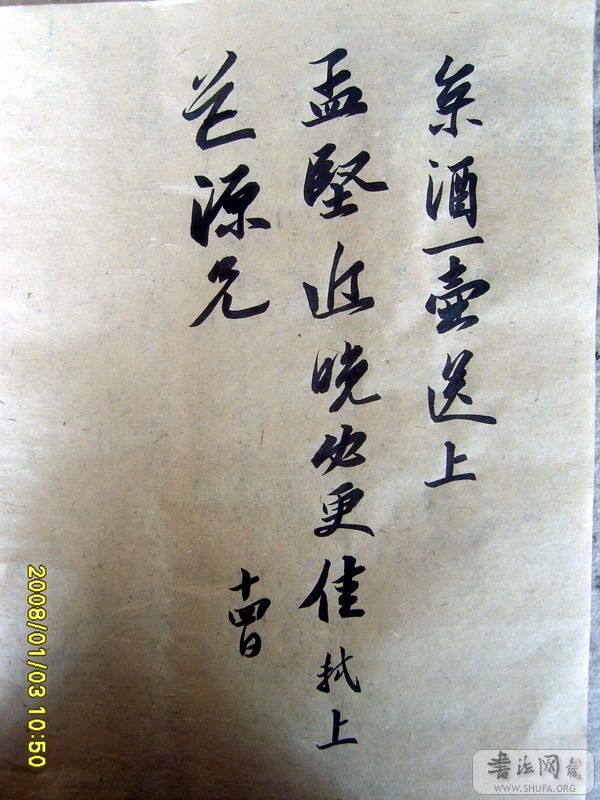 京酒一壺送上
孟堅近晚必更佳軾上
道源兄
十四日
2008/01/03 10:50
書法网
WWW.SHUFA.ORG